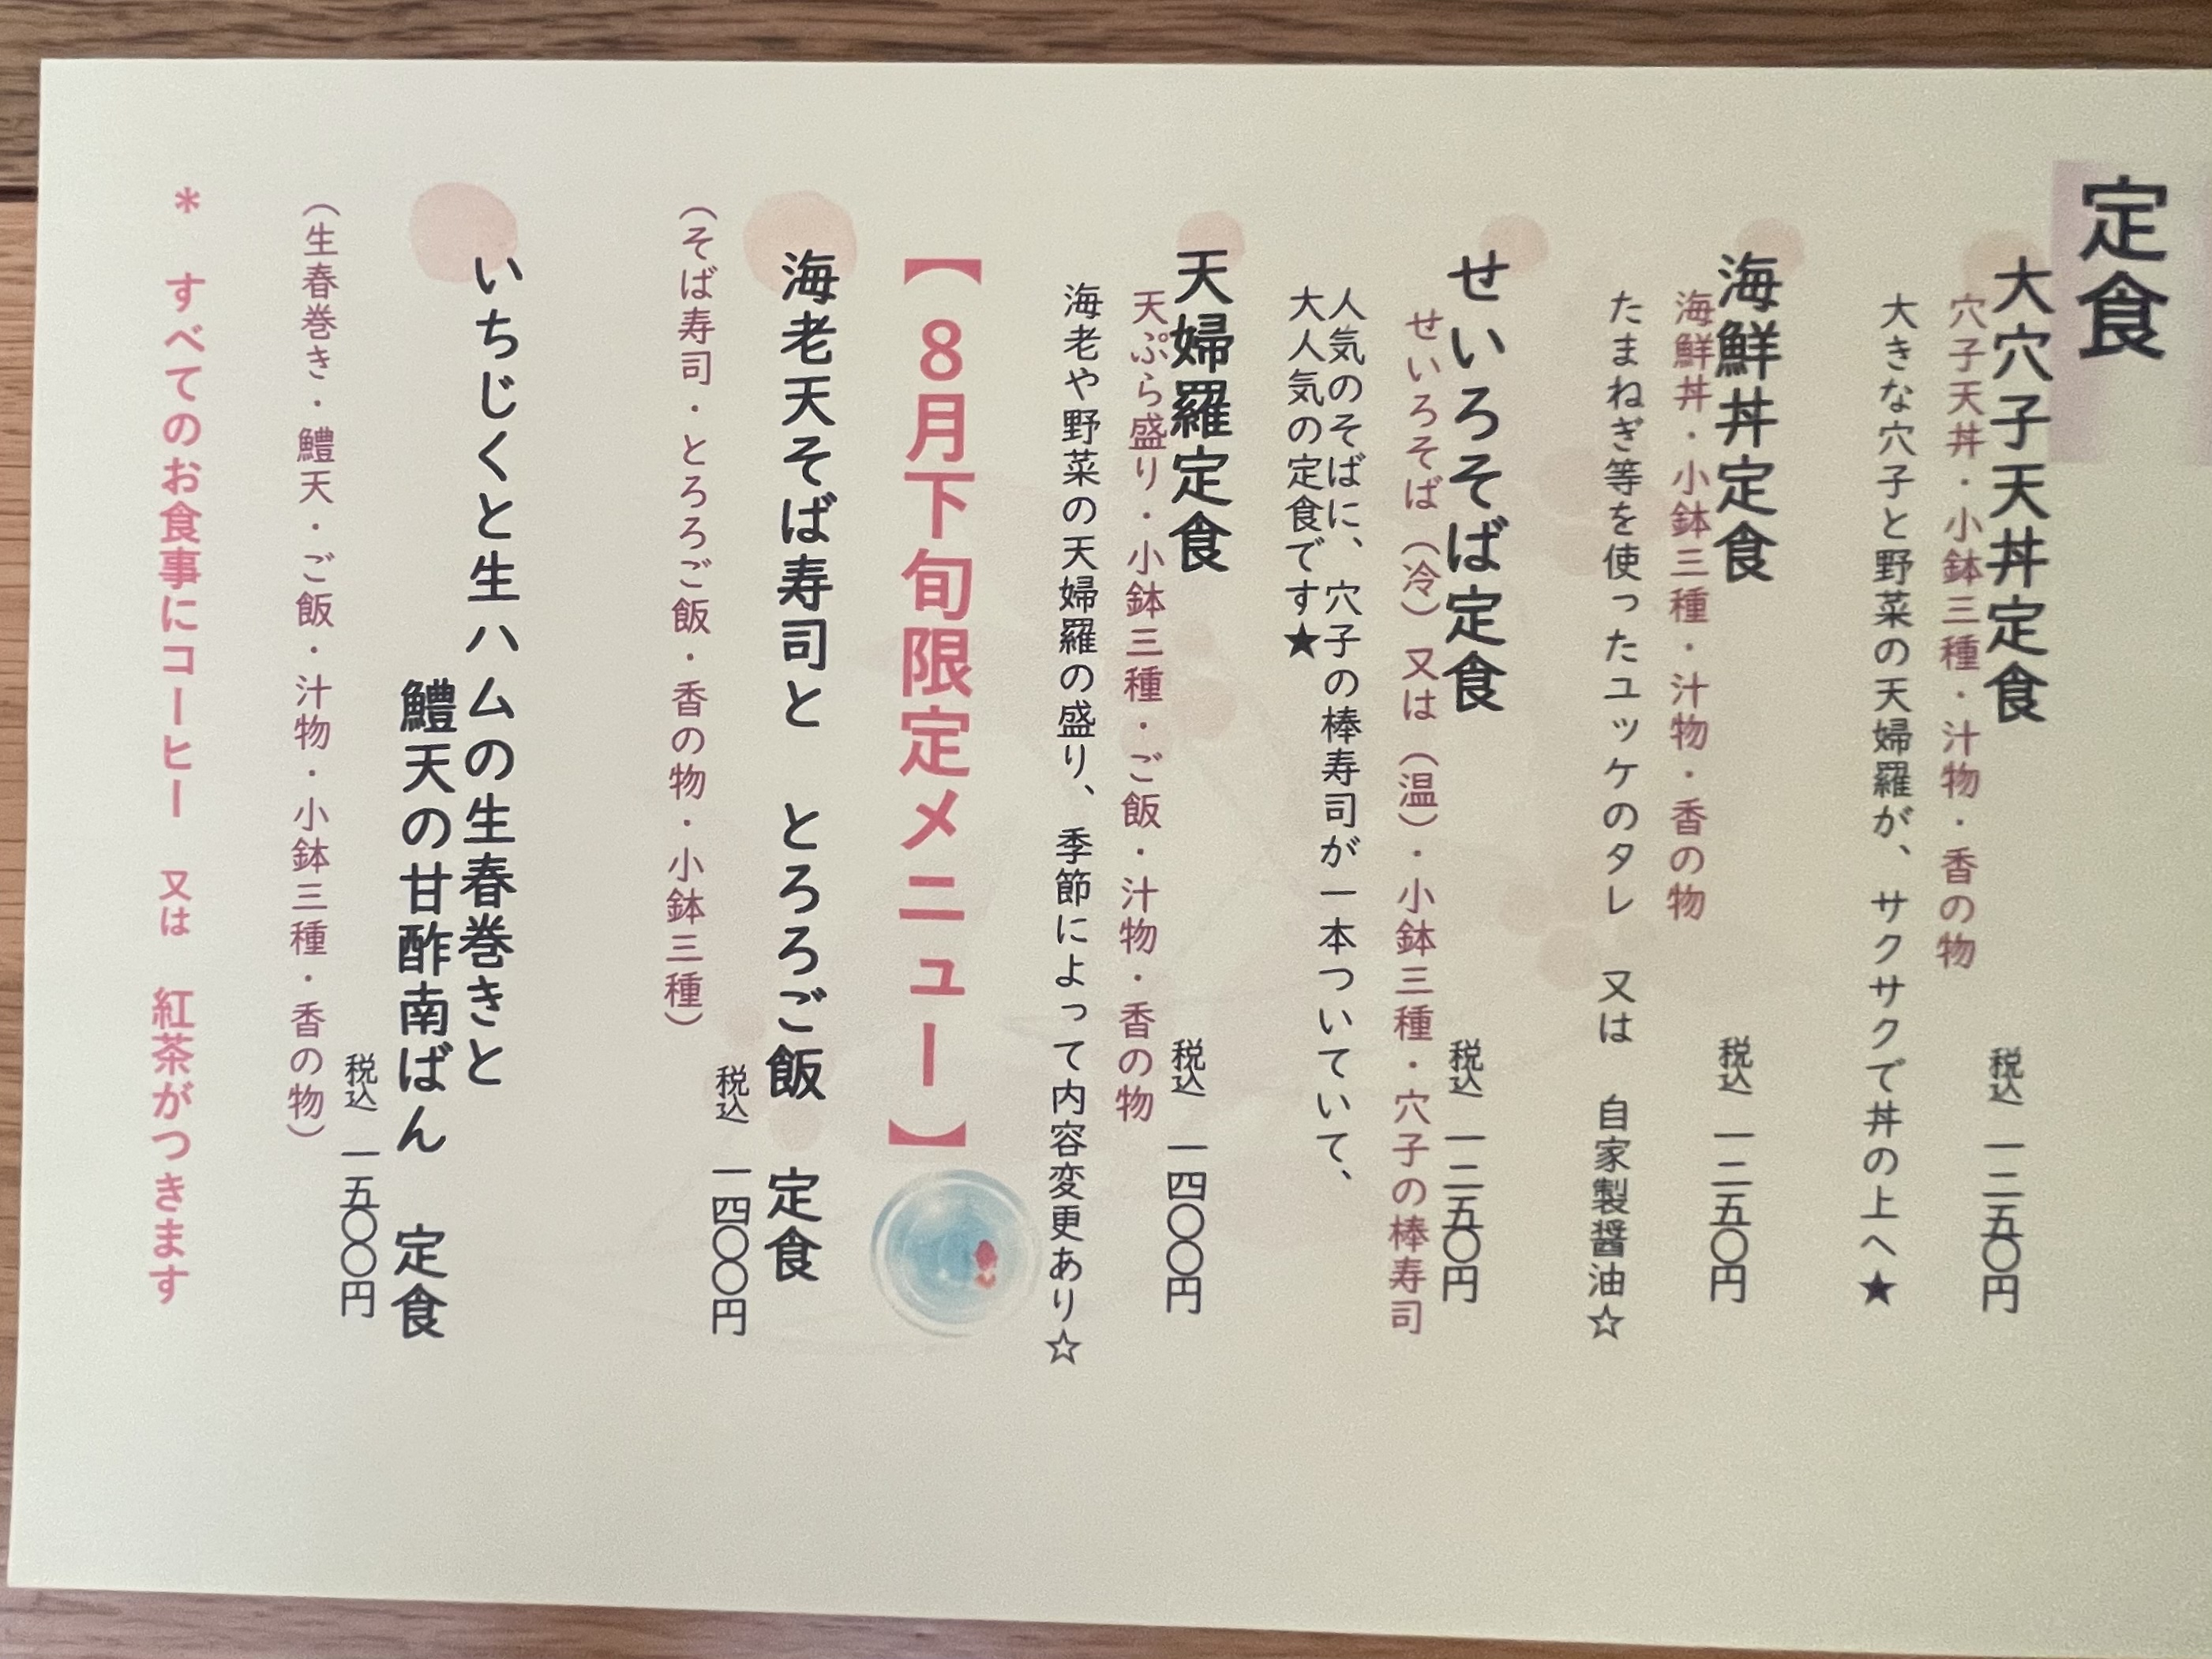 定食
大穴子天丼定食
税込 一二五〇円
穴子天丼・小鉢三種・汁物・香の物
大きな穴子と野菜の天婦羅が、サクサクで丼の上へ★
海鮮丼定食
税込 一二五〇円
海鮮丼・小鉢三種・汁物・香の物
たまねぎ等を使ったユッケのタレ 又は 自家製醤油☆
せいろそば定食
税込 一二五〇円
せいろそば（冷）又は（温）・小鉢三種・穴子の棒寿司
人気のそばに、穴子の棒寿司が一本ついていて、
大人気の定食です★
天婦羅定食
税込 一四〇〇円
天ぷら盛り・小鉢三種・ご飯・汁物・香の物
海老や野菜の天婦羅の盛り、季節によって内容変更あり☆
【8月下旬限定メニュー】
海老天そば寿司と とろろご飯 定食
税込 一四〇〇円
（そば寿司・とろろご飯・香の物・小鉢三種）
いちじくと生ハムの生春巻きと
鱧天の甘酢南ばん 定食
税込 一五〇〇円
（生春巻き・鱧天・ご飯・汁物・小鉢三種・香の物）
* すべてのお食事にコーヒー 又は 紅茶がつきます